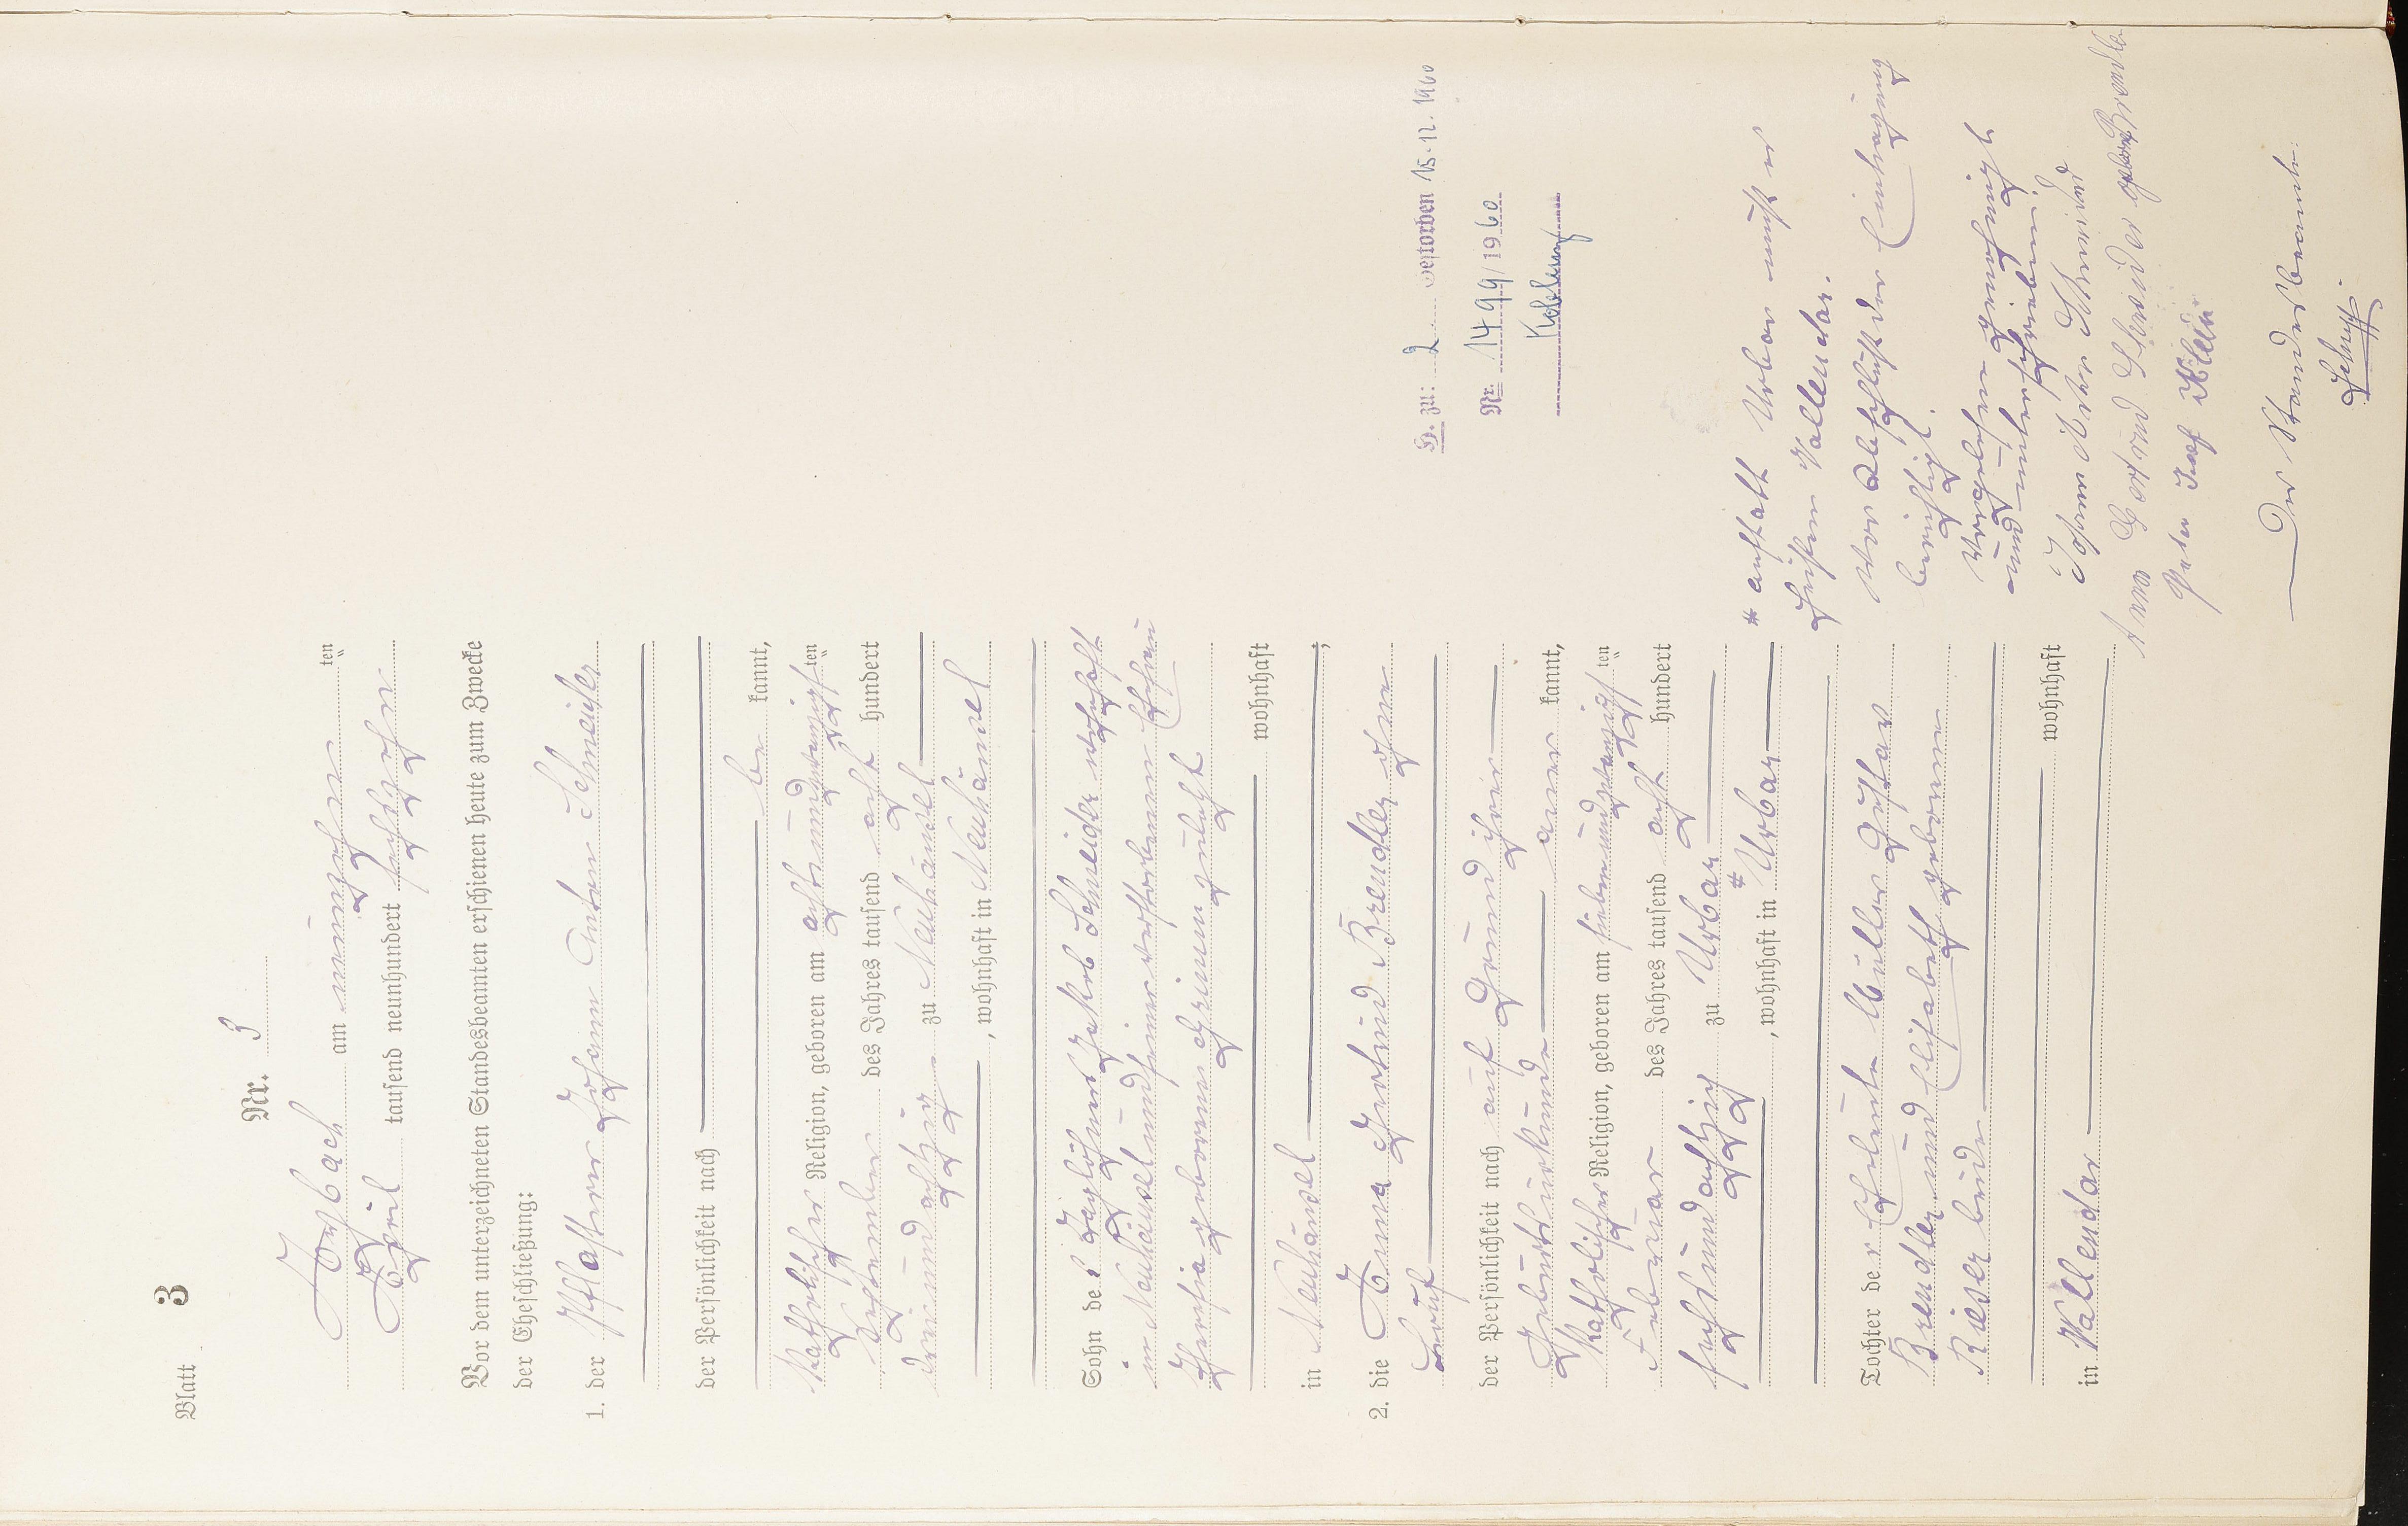 Blatt 3
Nr. 3
Arzbach am neunzehn ten
April tausend neunhundert sechzehn
Vor dem unterzeichneten Standesbeamten erschienen heute zum Zwecke
der Eheschließung:
1. der Pflasterer Johann Anton Schneider
der Persönlichkeit nach
be kannt,
katholischer Religion, geboren am achtundzwanzigsten ten
September des Jahres tausend acht hundert
dreiundachtzig zu Neuhäusel
, wohnhaft in Neuhäusel
Sohn des Taglöhners Jakob Schneider wohnhaft
in Neuhäusel und seiner verstorbenen Ehefrau
Theresia geborenen zuletzt
wohnhaft
in Neuhäusel ;
2. die Anna Gertrud Brendler ohne
Beruf
der Persönlichkeit nach auf Grund ihrer
Geburtsurkunde aner kannt,
katholischer Religion, geboren am siebenundzwanzigst ten
Februar des Jahres tausend acht hundert
sechsundachtzig zu Urbar
, wohnhaft in * Urbar
Tochter der Eheleute Müller Gustav
Brendler und Elisabeth geborenen
Rieserbude
wohnhaft
in Vallendar
H. zu: 2 gestorben 15.12.1960
Nr. 1499/1960
Koblenz
* anstatt Urbar muß es
heißen Vallendar.
Vor Abschluß der Eintragung
berichtigt.
Vorgelesen genehmigt
und unterschrieben:
Johann Anton Schneider
Anna Gertrud Schneider geborene Brendler
Peter Josef Klein
Der Standesbeamte: